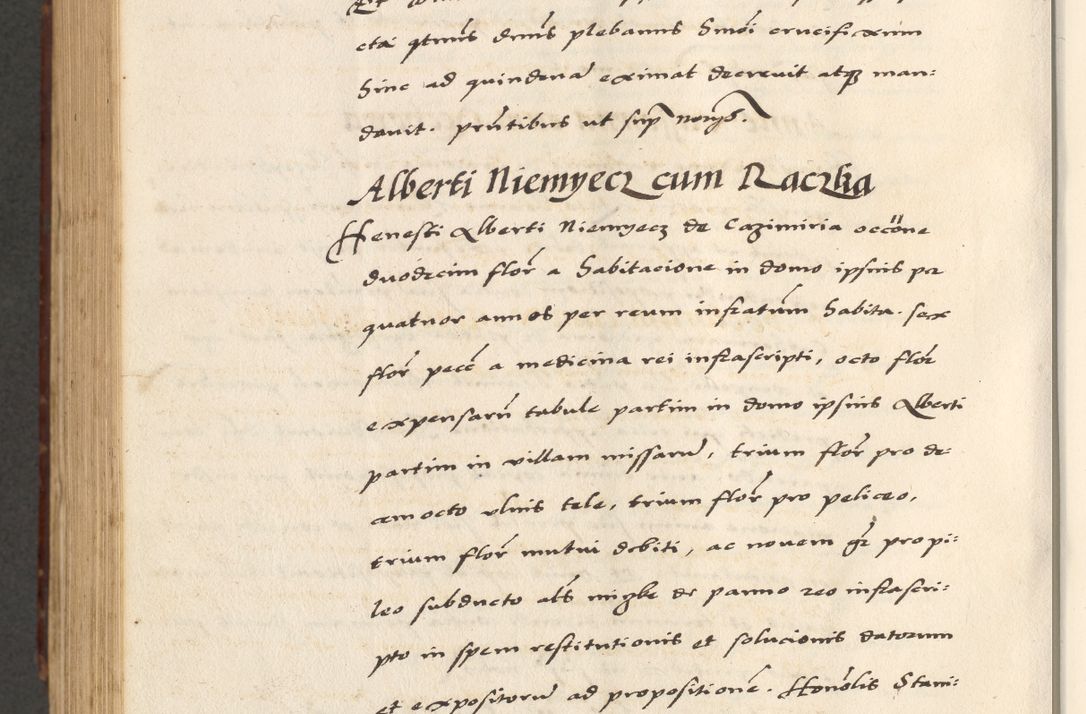 cta qtnus dnus plebanus Smoi crucifixum
hinc ad quindenam eximat decrevit atque man:
davit. pñtibus ut sup nonys.
Alberti Niemyecz cum Raczka
Honesti Alberti Niemyecz de Cazimiria occone
duodecim flor a habitacione in domo ipsius per
quatuor annos per reum infratum habita. sex
flor pecc a medicina rei infrascripti, octo flor
expensarum tabule partim in domo ipsius Alberti
partim in villam missarum, trium flor pro de:
cemocto ulnis tele, trium flor pro peliceo,
trium flor mutui debiti, ac novem gr pro pi:
leo subducto als de panno reo infrascri:
pto in spem restitutionis et solucionis datorum
et expositorum ad propositionem. Honolis Stani: